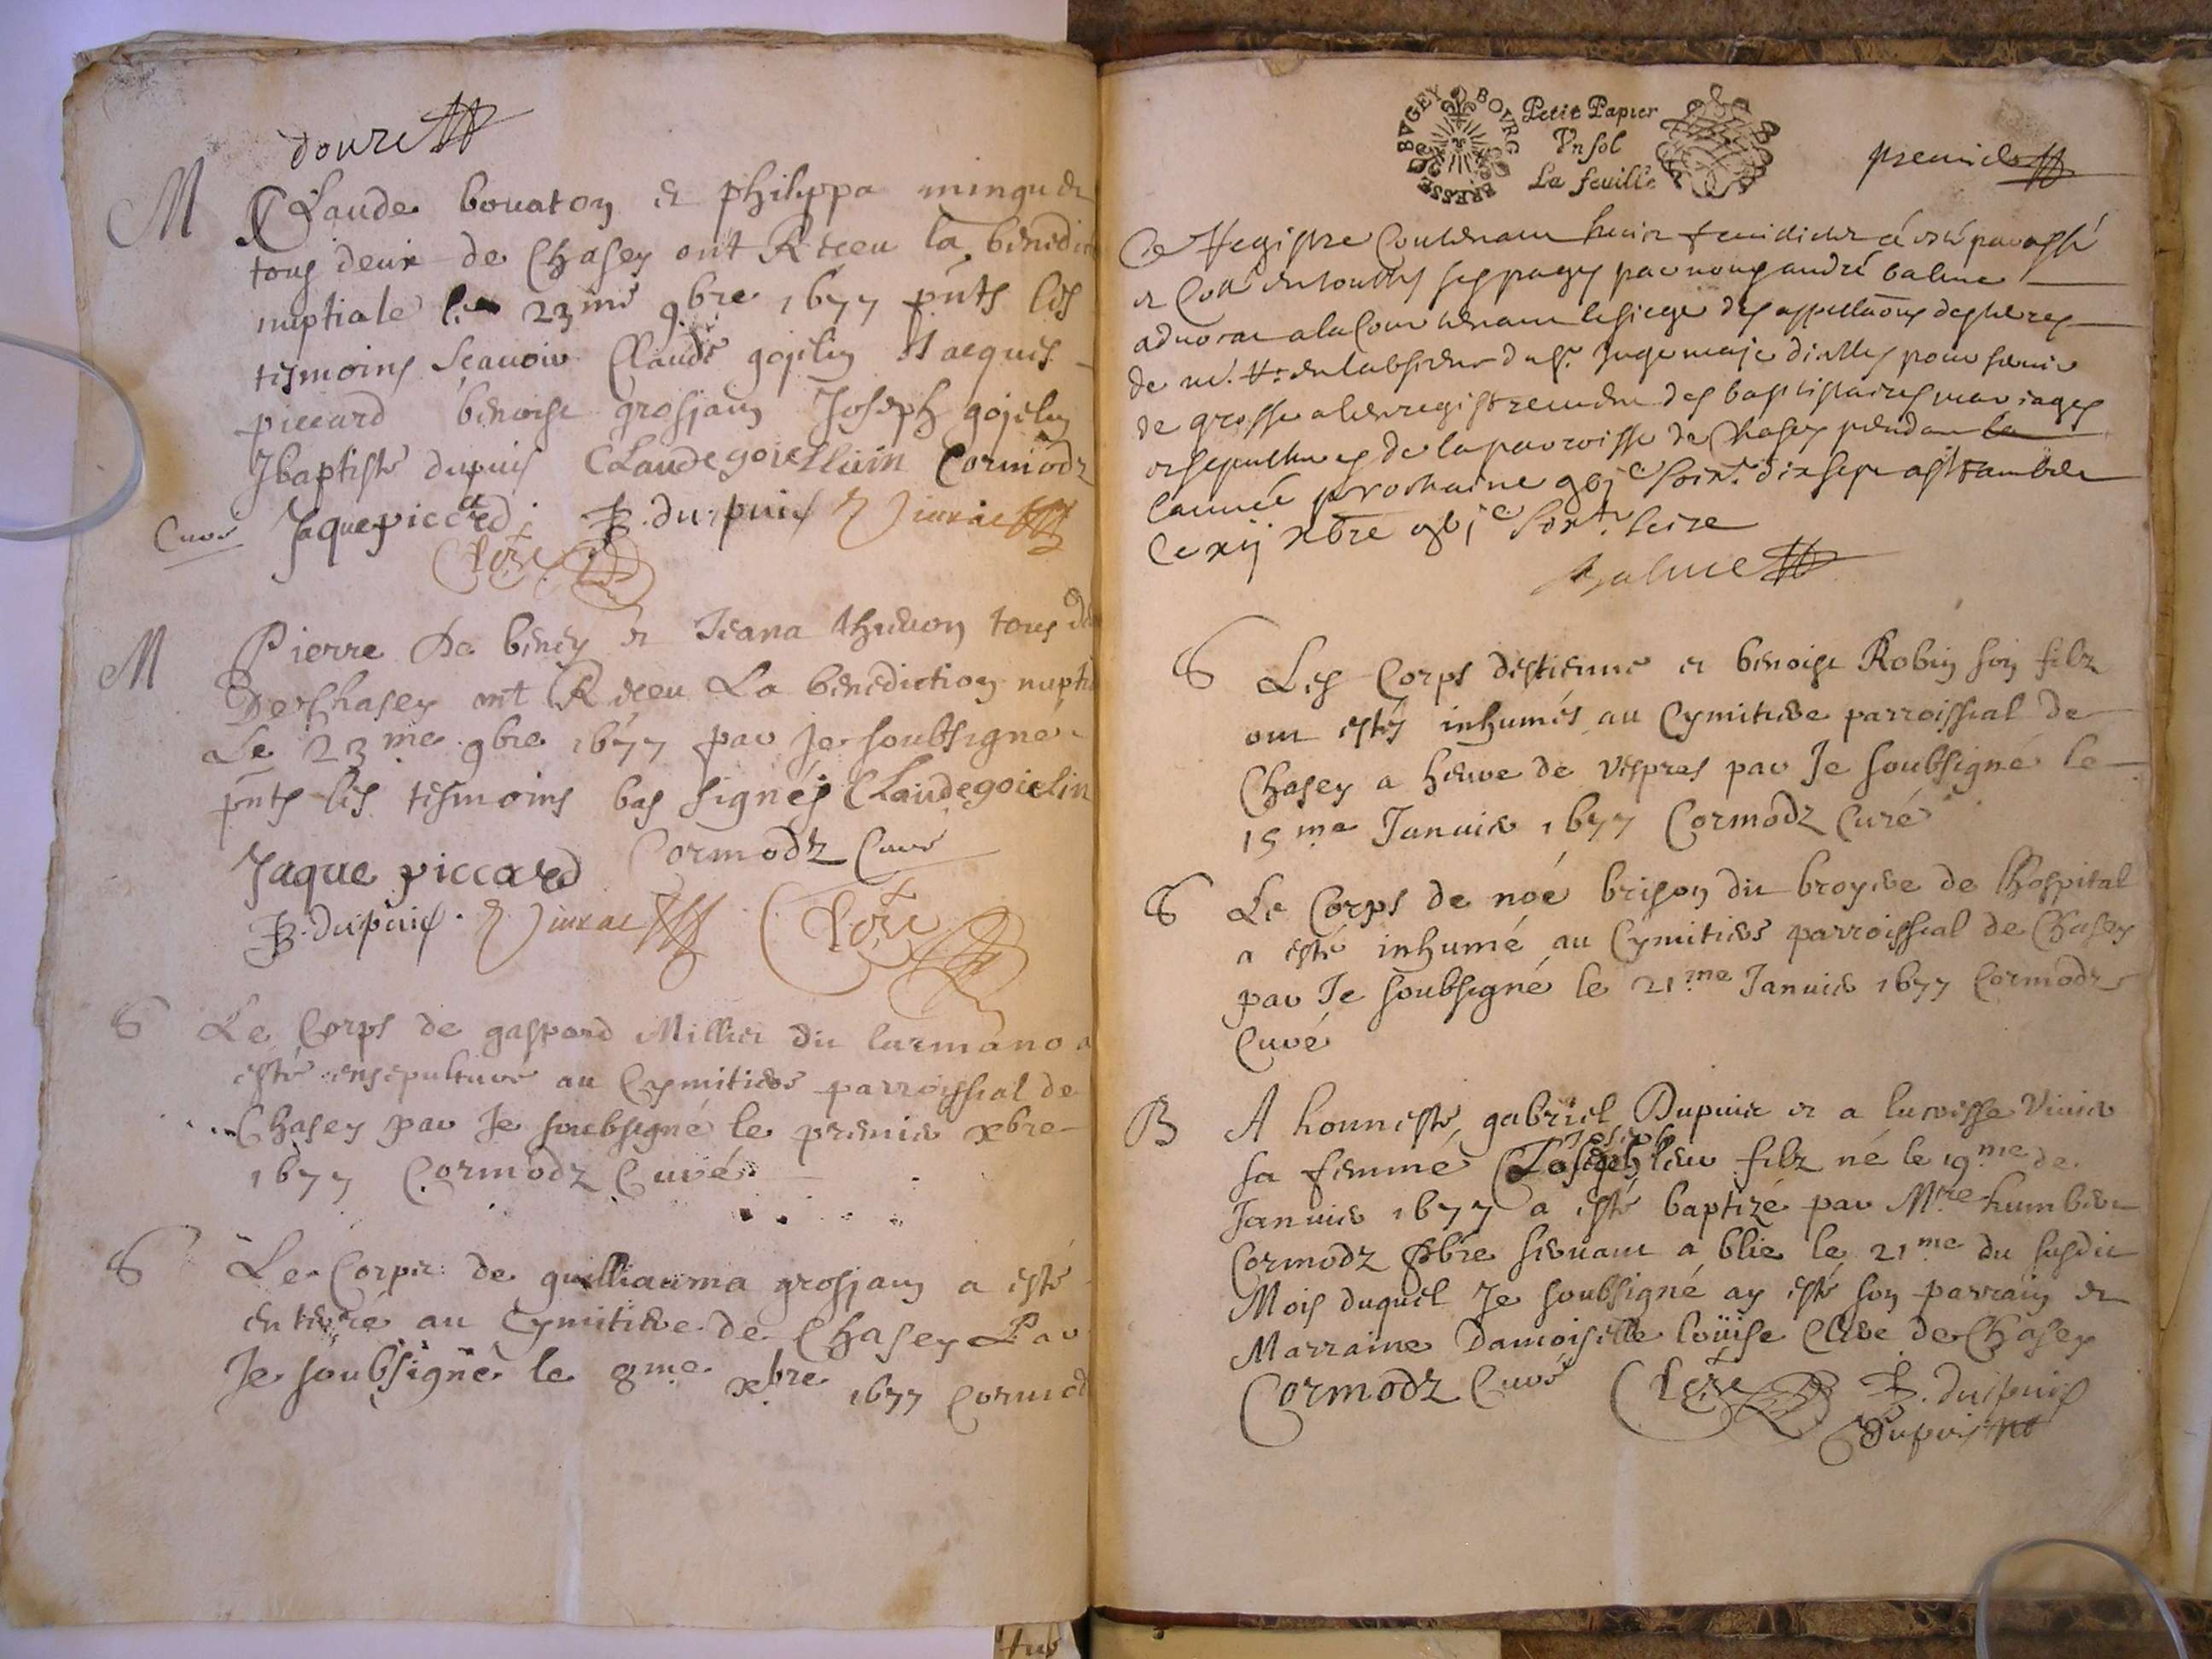 douze
M
Claude bouaton et philippa minguet
tous deux de Chasey ont Receu la benedi
nuptiale le 23me 9bre 1677 pnts les
tesmoins Scauoir Claude gojelin Jacques
piccard benoist grosjean Joseph gojelin
Jbaptiste dupuis CLaude goiellin Cormodz
Curé Jaque piccard J B. dupuis
Clere
M
Pierre De beney et Jeana theuon tous
De Chasey ont Receu La benediction nupti
Le 23me 9bre 1677 par Je soubsigné
pnts les tesmoins bas signés CLaude goielin
Jaque piccard Cormodz Curé
J B. dupuis
Clere
S
Le Corps de gaspard Millier du lurmano a
esté ensepulturé au Cymitiere parroissial de
Chasey par Je soubsigné le premier xbre
1677 Cormodz Curé
S
Le Corps de guilliauma grosjean a esté
enterré au Cymitiere de Chasey Par
Je soubsigné le 8me xbre 1677 Cormod
BRESSE BVGEY BOVRG
Petit Papier
Vn sol
La feuille
premier
Ce Registre Contenant huict feuillets a esté paraffé
et Cotté en touttes ses pages par nous andré balme
aduocat a la Cour tenant le siege des appellaons des terres
de en labsence du sr. Juge maje dicelles pour seruir
de grosse a lenregistrement des baptistaires mariages
et sepultures de la parroisse de Chasey pendant la
lannée prochaine gbjc soixte. dix sept a st rambert
Ce xij xbre gbjc soixte. seize
Balme
S
Les Corps destienne et benoist Robin son filz
ont estés inhumés au Cymitiere parroissial de
Chasey a heure de vespres par Je soubsigné le
15me Januier 1677 Cormodz Curé
S
Le Corps de noé brison du broyere de lhospital
a esté inhumé au Cymitiere parroissial de Chasey
par Je soubsigné le 21me Januier 1677 Cormodz
Curé
B
A honneste gabriel Dupuis et a lucresse viuier
Joseph
sa femme Joseph leur filz né le 19me de
Januier 1677 a esté baptizé par Mre humbert
Cormodz pbre seruant a blie le 21me du susdit
Mois duquel Je soubsigné ay esté son parrain et
Marraine Damoiselle loüise Clere de Chasey
Cormodz Curé Clere J B. dupuis
Dupuis